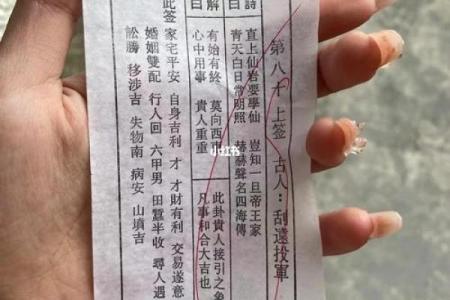 第八十 上签 古人：刮遠投軍
詩曰
直上仙岩要學仙 豈知一旦帝王家
青天白日常明照 赫赫聲名四海傳
解曰
有始有終 莫向西東 此卦貴人接引之象
心中用事 貴人重重 凡事和合大吉也
此签 家宅平安 自身吉利 才 才財有利 交易遂意
婚姻雙配 行人回 六甲男 田蠶半收 尋人遇
訟勝 移涉吉 失物南 病安 山墳吉
小红书